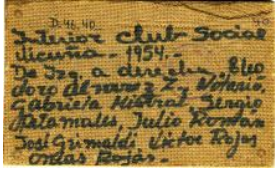 D.46.40
Interior Club Social
Vicuña.- 1954.-
De Izq. a derecha. Elio
doro Alvarez Z, Notario,
Gabriela Mistral, Sergio
Julio Roman
José Grimaldi, Victor Rojas
Rojas.-